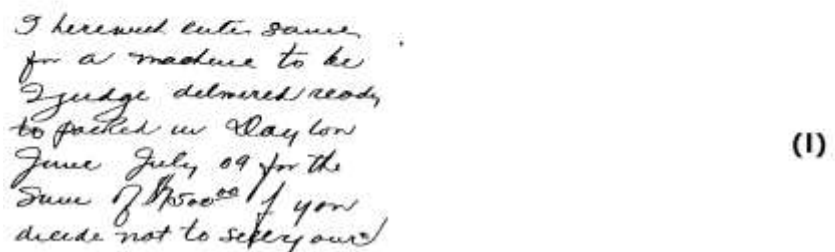 I herewith enter same
for a machine to be
I judge delivered ready
to packed in Dayton
June July 09 for the
Sum of $7500⁰⁰ If you
decide not to sell yours
(I)